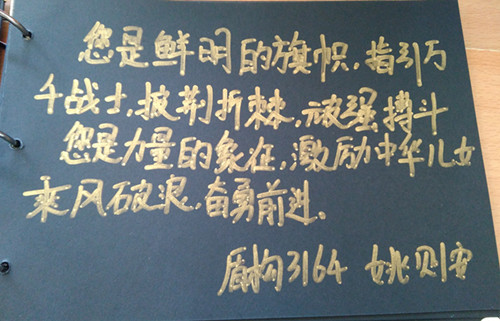 您是鲜明的旗帜,指引万
千战士,披荆折棘,顽强搏斗
您是力量的象征,激励中华儿女
乘风破浪,奋勇前进。
盾构3164 姚贝安